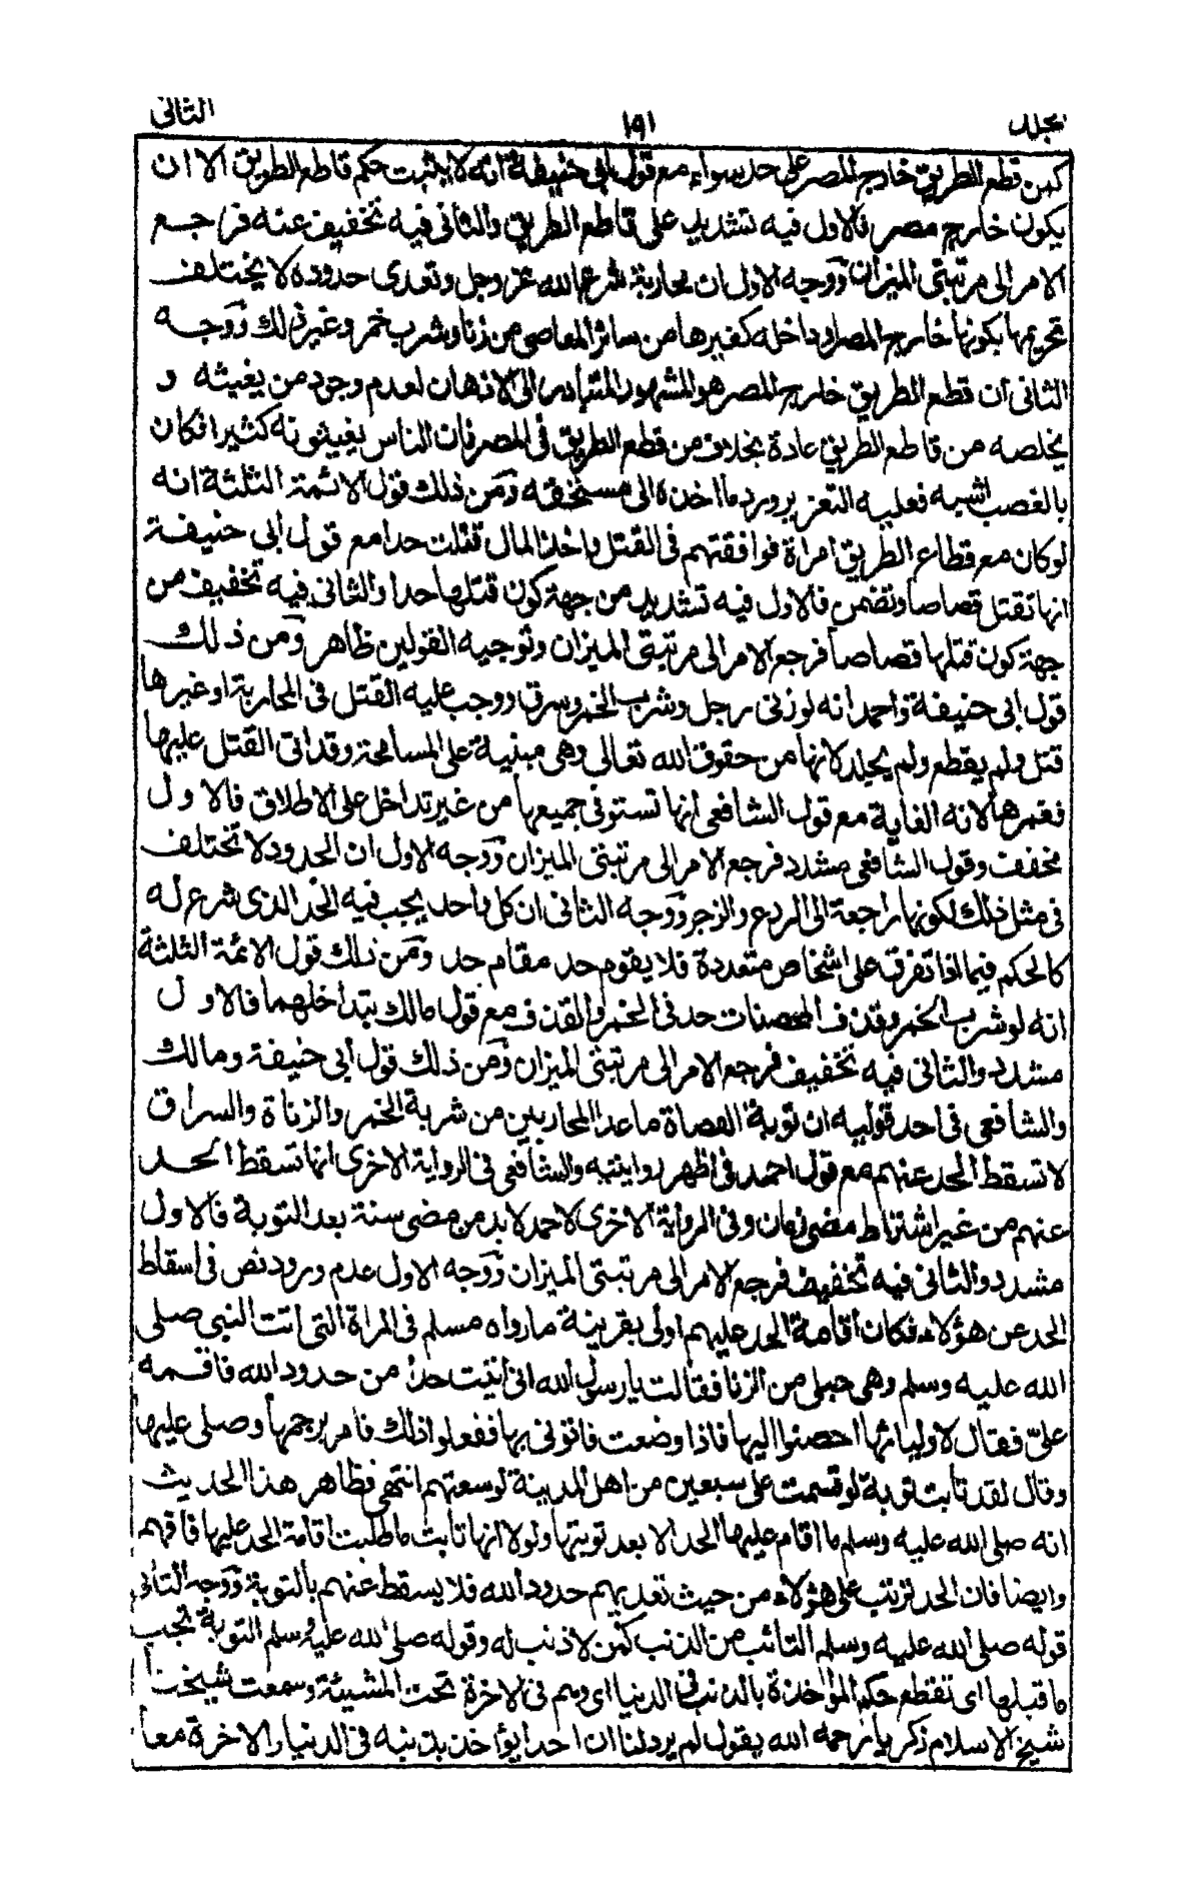 مجلد ١٩١ الثانى
كمن قطع الطريق خارج المصر على حد سواء مع قول ابى حنيفة انه لا يثبت حكم قاطع الطريق الا ان
يكون خارج مصر فالاول فيه تشديد على قاطع الطريق والثانى فيه تخفيف عنه فرجع
الامر الى مرتبتى الميزان ووجه الاول ان محاربة شرع الله عز وجل وتعدى حدوده لا يختلف
تحريمها بكونها خارج المصر او داخله كغيرها من سائر المعاصى من زنا وشرب خمر وغير ذلك ووجه
الثانى ان قطع الطريق خارج المصر هو المشهور المتبادر الى الاذهان لعدم وجود من يغيثه و
يخلصه من قاطع الطريق عادة بخلاف من قطع الطريق فى المصر فان الناس يغيثونه كثيرا فكان
بالغصب اشبه فعليه التعزير ورد ما اخذه الى مستحقه ومن ذلك قول الائمة الثلثة انه
لو كان مع قطاع الطريق امراة فوافقتهم فى القتل واخذ المال قتلت حدا مع قول ابى حنيفة
انها تقتل قصاصا وتضمن فالاول فيه تشديد من جهة كون قتلها حدا والثانى فيه تخفيف من
جهة كون قتلها قصاصا فرجع الامر الى مرتبتى الميزان وتوجيه القولين ظاهر ومن ذلك
قول ابى حنيفة واحمد انه لو زنى رجل وشرب الخمر وسرق ووجب عليه القتل فى المحاربة او غيرها
قتل ولم يقطع ولم يجلد لانها من حقوق الله تعالى وهى مبنية على المسامحة وقد اتى القتل عليها
فغمرها لانه الغاية مع قول الشافعى انها تستوفى جميعها من غير تداخل على الاطلاق فالاول
مخفف وقول الشافعى مشدد فرجع الامر الى مرتبتى الميزان ووجه الاول ان الحدود لا تختلف
فى مثل ذلك لكونها راجعة الى الردع والزجر ووجه الثانى ان كل واحد يجب فيه الحد الذى شرع له
كالحكم فيما اذا تفرقت على اشخاص متعددة فلا يقوم حد مقام حد ومن ذلك قول الائمة الثلثة
انه لو شرب الخمر وقذف المحصنات حد فى الخمر والقذف مع قول مالك بتداخلهما فالاول
مشدد والثانى فيه تخفيف فرجع الامر الى مرتبتى الميزان ومن ذلك قول ابى حنيفة ومالك
والشافعى فى احد قوليه ان توبة العصاة ماعدا المحاربين من شربة الخمر والزناة والسراق
لا تسقط الحد عنهم مع قول احمد فى اظهر روايتيه والشافعى فى الرواية الاخرى انها تسقط الحد
عنهم من غير اشتراط مضى زمان وفى الرواية الاخرى لاحمد لا بد من مضى سنة بعد التوبة فالاول
مشدد والثانى فيه تخفيف فرجع الامر الى مرتبتى الميزان ووجه الاول عدم ورود نص فى اسقاط
الحد عن هؤلاء فكان اقامة الحد عليهم اولى بقرينة ما رواه مسلم فى المراة التى اتت النبى صلى
الله عليه وسلم وهى حبلى من الزنا فقالت يا رسول الله انى اتيت حدا من حدود الله فاقمه
علىّ فقال لاوليائها احصنوا اليها فاذا وضعت فاتونى بها ففعلوا ذلك فامر برجمها وصلى عليها
وقال لقد تابت توبة لو قسمت على سبعين من اهل المدينة لوسعتهم انتهى فظاهر هذا الحديث
انه صلى الله عليه وسلم ما اقام عليها الحد الا بعد توبتها ولولا انها تابت ما طلبت اقامة الحد عليها فافهم
وايضا فان الحد ترتب على هؤلاء من حيث تعديهم حدود الله فلا يسقط عنهم بالتوبة ووجه الثانى
قوله صلى الله عليه وسلم التائب من الذنب كمن لا ذنب له وقوله صلى الله عليه وسلم التوبة تجب
ما قبلها اى تقطع حكم المؤاخذة بالذنب فى الدنيا اى وهم فى الاخرة تحت المشيئة وسمعت شيخنا
شيخ الاسلام زكريا رحمه الله يقول لم يرد لنا ان احدا يؤاخذ بذنبه فى الدنيا والاخرة معا